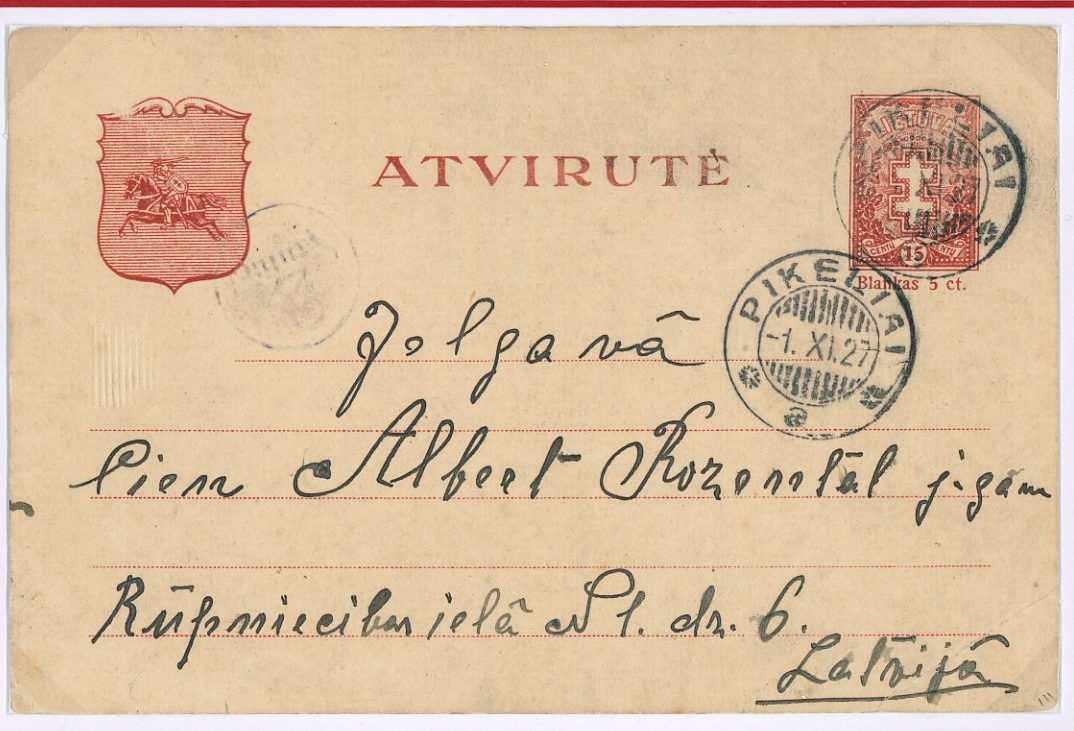 ATVIRUTĖ
LIETUVA
CENTŲ 15 CENTŲ
Blankas 5 ct.
PIKELIAI
-1. XI. 27
Jelgavā
Cien Albert Rozentāl j-gām
Rūpniecības ielā Nl. dz. 6.
Latvijā